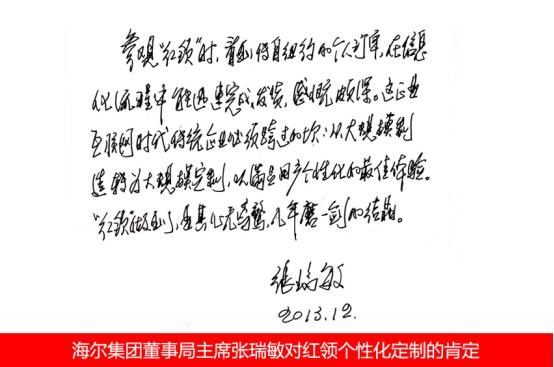 参观“红领”时,看到传自纽约的个人订单,在信息
化流程中能迅速完成、发货,感慨颇深。这是
互联网时代传统企业必须跨过的坎:从大规模制
造转为大规模定制,以满足用户个性化的最佳体验。
“红领”做到了,是其心无旁骛,几年磨一剑的结果。
张瑞敏
2013.12.
海尔集团董事局主席张瑞敏对红领个性化定制的肯定